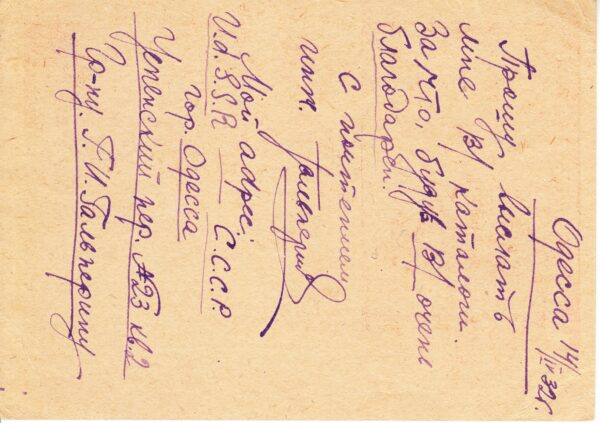 Одесса 14/IV 32г.
Прошу выслать
мне В/ каталог.
За что, буду В/ очень
благодарен.
С почтением
инж. Гальперин
Мой адрес:
U.d.S.S.R С.С.С.Р.
гор. Одесса
Успенский пер. №23 кв.2
Гр-ну. Г. И. Гальперину